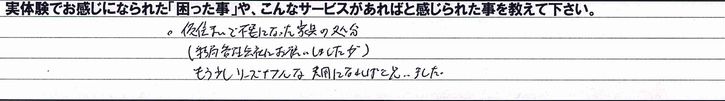 実体験でお感じになられた「困った事」や、こんなサービスがあればと感じられた事を教えて下さい。
。仮住まいで不要になった家具の処分
(お願いしましたが)
もう少しリーズナブルな 費用になればと思いました。